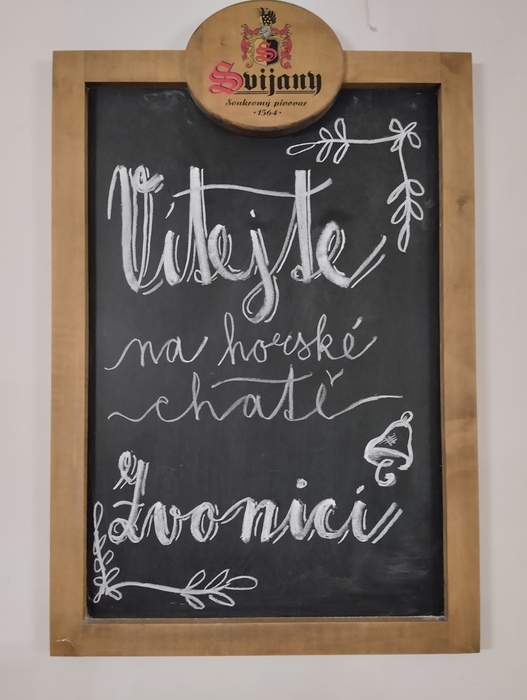 Svijany
Soukromý pivovar
·1564·
Vítejte
na horské
chatě
Zvonici